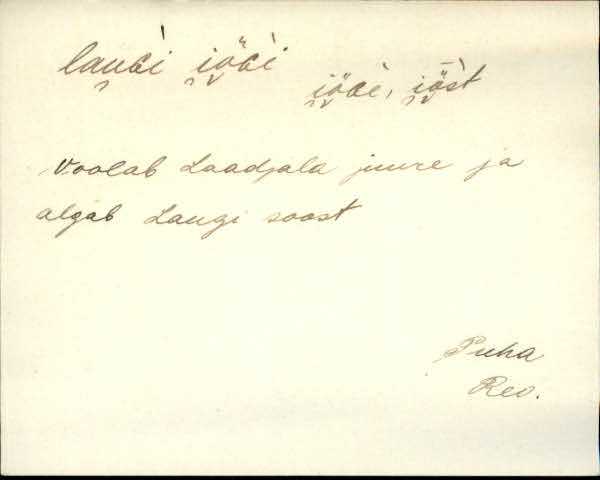 lau̯Gi i̯ö̭Gi
i̯ö̭Gi, i̯ö̭st
Voolab Laadjala juure ja
algab Laugi soost
Püha
Rev.